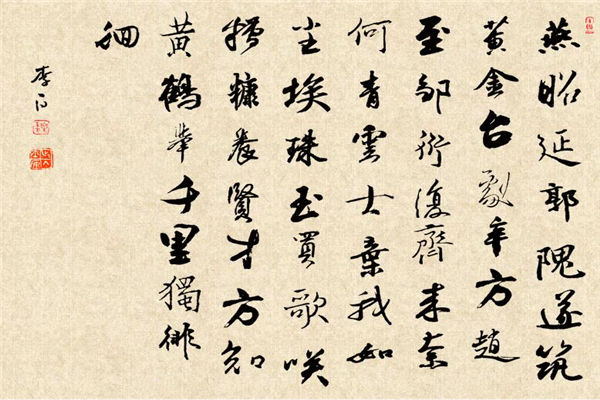 燕昭延郭隗遂筑
黄金台劇辛方趙
至邹衍復齊来奈
何青雲士棄我如
尘埃珠玉買歌咲
糟糠养賢才方知
黄鶴举千里獨徘
徊
李白